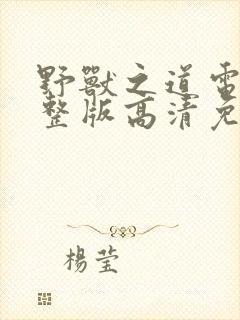 野獸之道電
整版高清免
楊莹